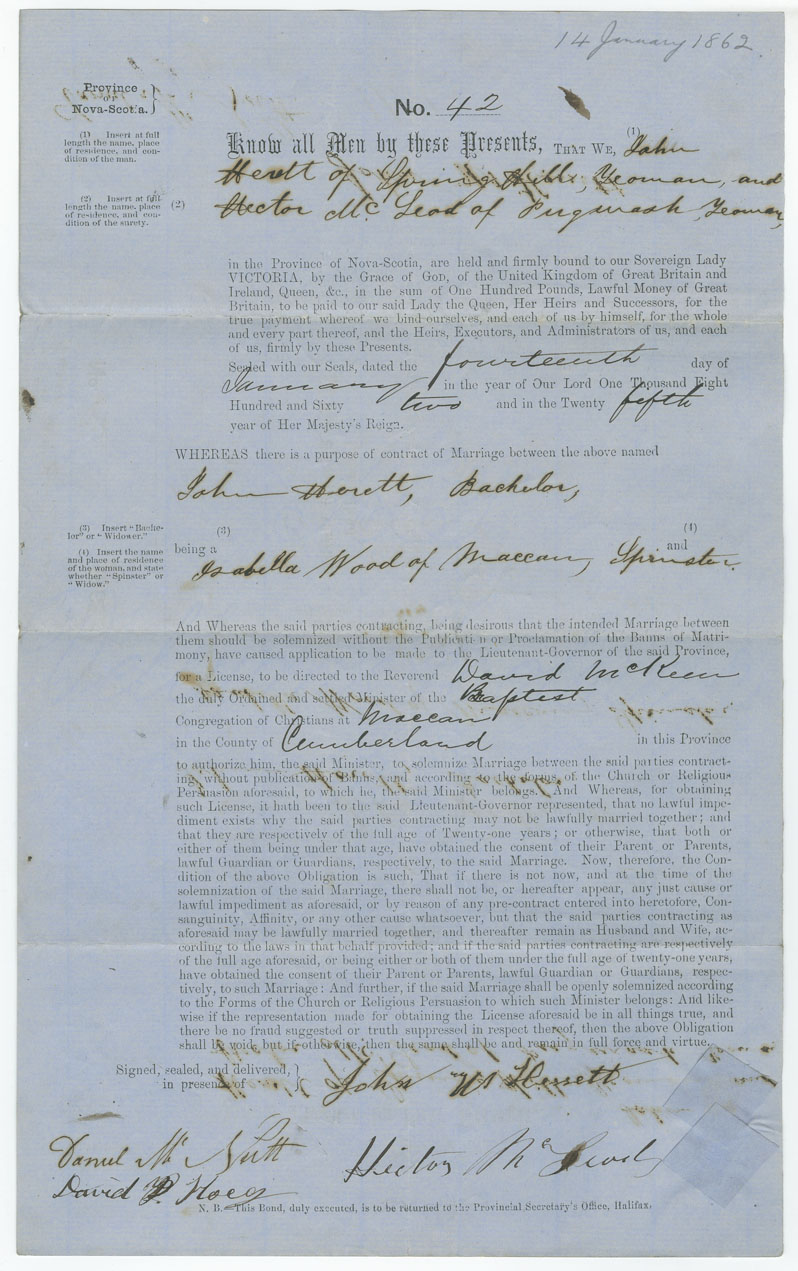 14 January 1862.
Province
OF
Nova-Scotia.
No. 42
(1) Insert at full
length the name, place
of residence, and con-
dition of the man.
Know all Men by these Presents, THAT WE, (1) John
Herett of Spring Hill, Yeoman, and
(2) Insert at full
length the name, place
of residence, and con-
dition of the surety.
(2) Hector Mc Leod of Pugwash Yeoman,
in the Province of Nova-Scotia, are held and firmly bound to our Sovereign Lady
VICTORIA, by the Grace of GOD, of the United Kingdom of Great Britain and
Ireland, Queen, &c., in the sum of One Hundred Pounds, Lawful Money of Great
Britain, to be paid to our said Lady the Queen, Her Heirs and Successors, for the
true payment whereof we bind ourselves, and each of us by himself, for the whole
and every part thereof, and the Heirs, Executors, and Administrators of us, and each
of us, firmly by these Presents.
Sealed with our Seals, dated the fourteenth day of
January in the year of Our Lord One Thousand Eight
Hundred and Sixty two and in the Twenty fifth
year of Her Majesty's Reign.
WHEREAS there is a purpose of contract of Marriage between the above named
John Herett, Bachelor,
(3) Insert "Bache-
lor" or "Widower."
(4) Insert the name
and place of residence
of the woman, and state
whether "Spinster" or
"Widow."
(3) (4)
being a and
Isabella Wood of Maccan, Spinster.
And Whereas the said parties contracting, being desirous that the intended Marriage between
them should be solemnized without the Publication or Proclamation of the Banns of Matri-
mony, have caused application to be made to the Lieutenant-Governor of the said Province,
for a License, to be directed to the Reverend David McKeen
the duly Ordained and settled Minister of the Baptist
Congregation of Christians at Maccan
in the County of Cumberland in this Province
to authorize him, the said Minister, to solemnize Marriage between the said parties contract-
ing, without publication of Banns, and according to the forms of the Church or Religious
Persuasion aforesaid, to which he, the said Minister belongs. And Whereas, for obtaining
such License, it hath been to the said Lieutenant-Governor represented, that no lawful impe-
diment exists why the said parties contracting may not be lawfully married together; and
that they are respectively of the full age of Twenty-one years; or otherwise, that both or
either of them being under that age, have obtained the consent of their Parent or Parents,
lawful Guardian or Guardians, respectively, to the said Marriage. Now, therefore, the Con-
dition of the above Obligation is such, That if there is not now, and at the time of the
solemnization of the said Marriage, there shall not be, or hereafter appear, any just cause or
lawful impediment as aforesaid, or by reason of any pre-contract entered into heretofore, Con-
sanguinity, Affinity, or any other cause whatsoever, but that the said parties contracting as
aforesaid may be lawfully married together, and thereafter remain as Husband and Wife, ac-
cording to the laws in that behalf provided; and if the said parties contracting are respectively
of the full age aforesaid, or being either or both of them under the full age of twenty-one years,
have obtained the consent of their Parent or Parents, lawful Guardian or Guardians, respec-
tively, to such Marriage: And further, if the said Marriage shall be openly solemnized according
to the Forms of the Church or Religious Persuasion to which such Minister belongs: And like-
wise if the representation made for obtaining the License aforesaid be in all things true, and
there be no fraud suggested or truth suppressed in respect thereof, then the above Obligation
shall be void, but if otherwise, then the same shall be and remain in full force and virtue.
Signed, sealed, and delivered,
in presence of
John Herrett
Daniel Mc Nutt
Hector McLeod
David Hoeg
N. B.—This Bond, duly executed, is to be returned to the Provincial Secretary's Office, Halifax.